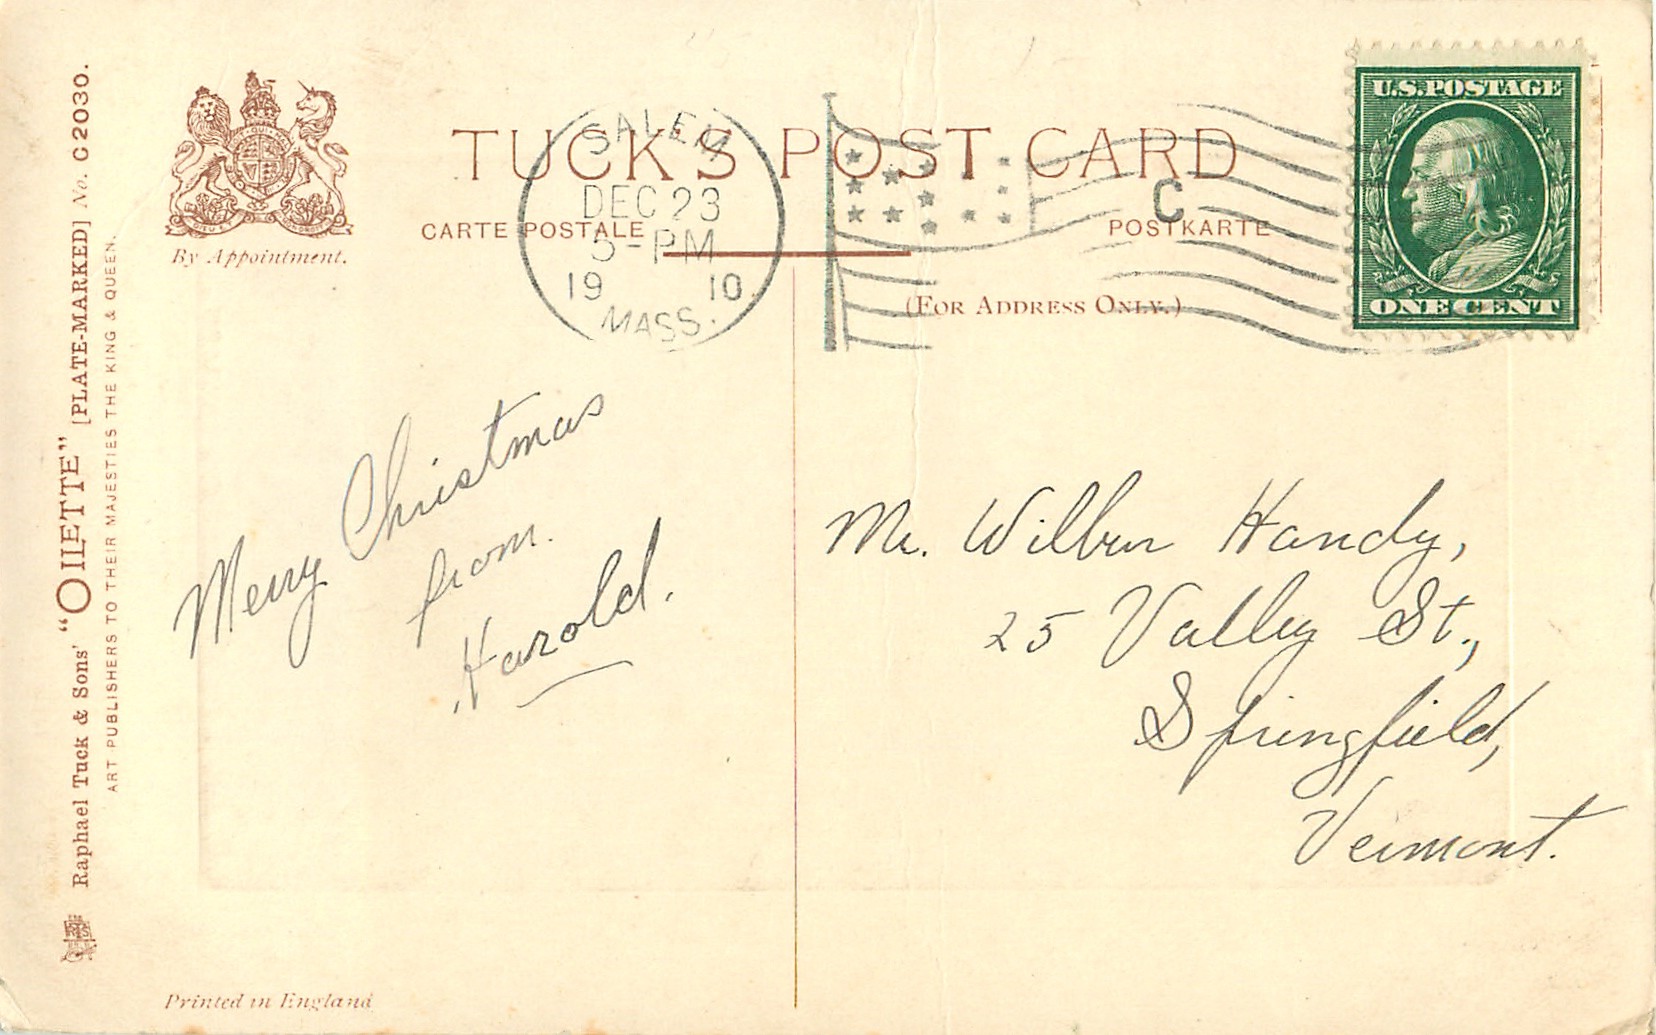 TUCK'S POST CARD
CARTE POSTALE
POSTKARTE
(FOR ADDRESS ONLY.)
By Appointment.
SALEM
DEC 23
5-PM
19 10
MASS.
C
U.S. POSTAGE
ONE CENT
Raphael Tuck & Sons' "OILETTE" [PLATE-MARKED] No. C2030.
ART PUBLISHERS TO THEIR MAJESTIES THE KING & QUEEN.
Merry Christmas
from.
Harold.
Mr. Wilbur Handy,
25 Valley St.,
Springfield,
Vermont.
Printed in England